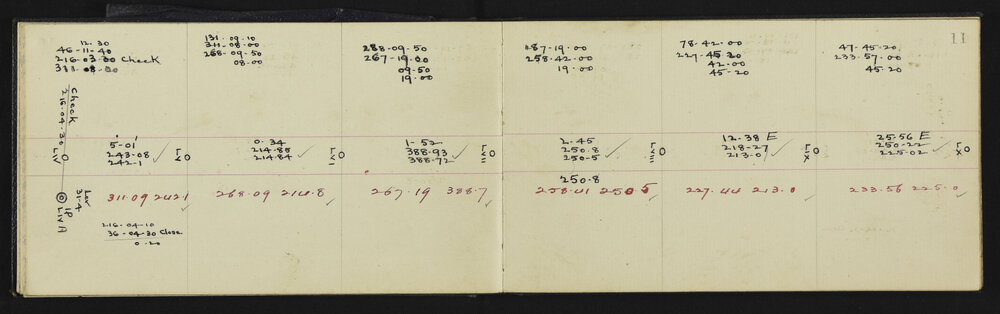 12-30
46-11-40
216-03-30 check
131-09-10
311-08-00
268-09-50
08-00
288-09-50
267-19-00
09-50
19-00
187-19-00
258-42-00
19-00
78-42-00
227-45-20
42-00
45-20
47-45-20
233-57-00
45-20
11
check
216-04-30
LIV
5-01
243-08
242-1
LV
0-34
214-85
214-84
LVI
1-52
388-93
388-72
LVII
2-45
250-8
250-5
LVIII
12-38 E
218-27
213-0
LIX
25-56 E
250-22
225-02
LX
250-8
31-4
IP
LIVA
311-09 242-1
268-09 214-8
267-19 388-7
258-41 250-5
227-44 213-0
233-56 225-0
216-04-10
36-04-30 Close
0-20